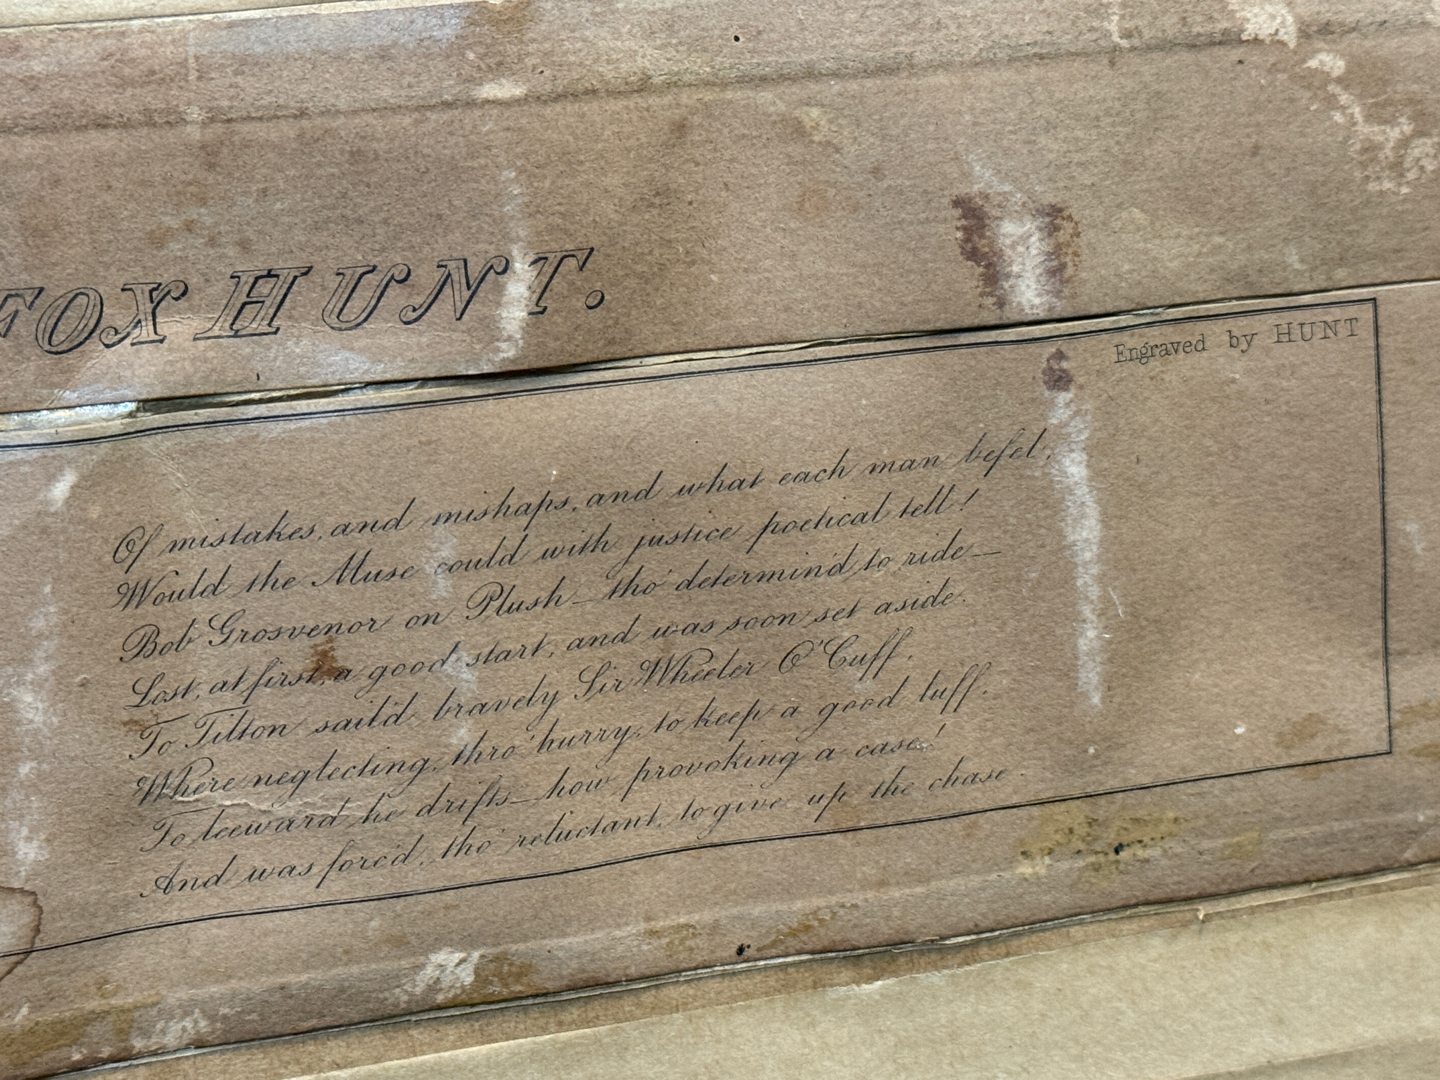 FOX HUNT.
Engraved by HUNT
Of mistakes, and mishaps, and what each man befel,
Would the Muse could with justice poetical tell!
Bob Grosvenor on Plush_tho' determin'd to ride_
Lost, at first, a good start, and was soon set aside.
To Tilton sail'd bravely Sir Wheeler O'Cuff,
Where neglecting, thro' hurry, to keep a good luff,
To leeward he drifts_how provoking a case!
And was forc'd, tho' reluctant, to give up the chase.